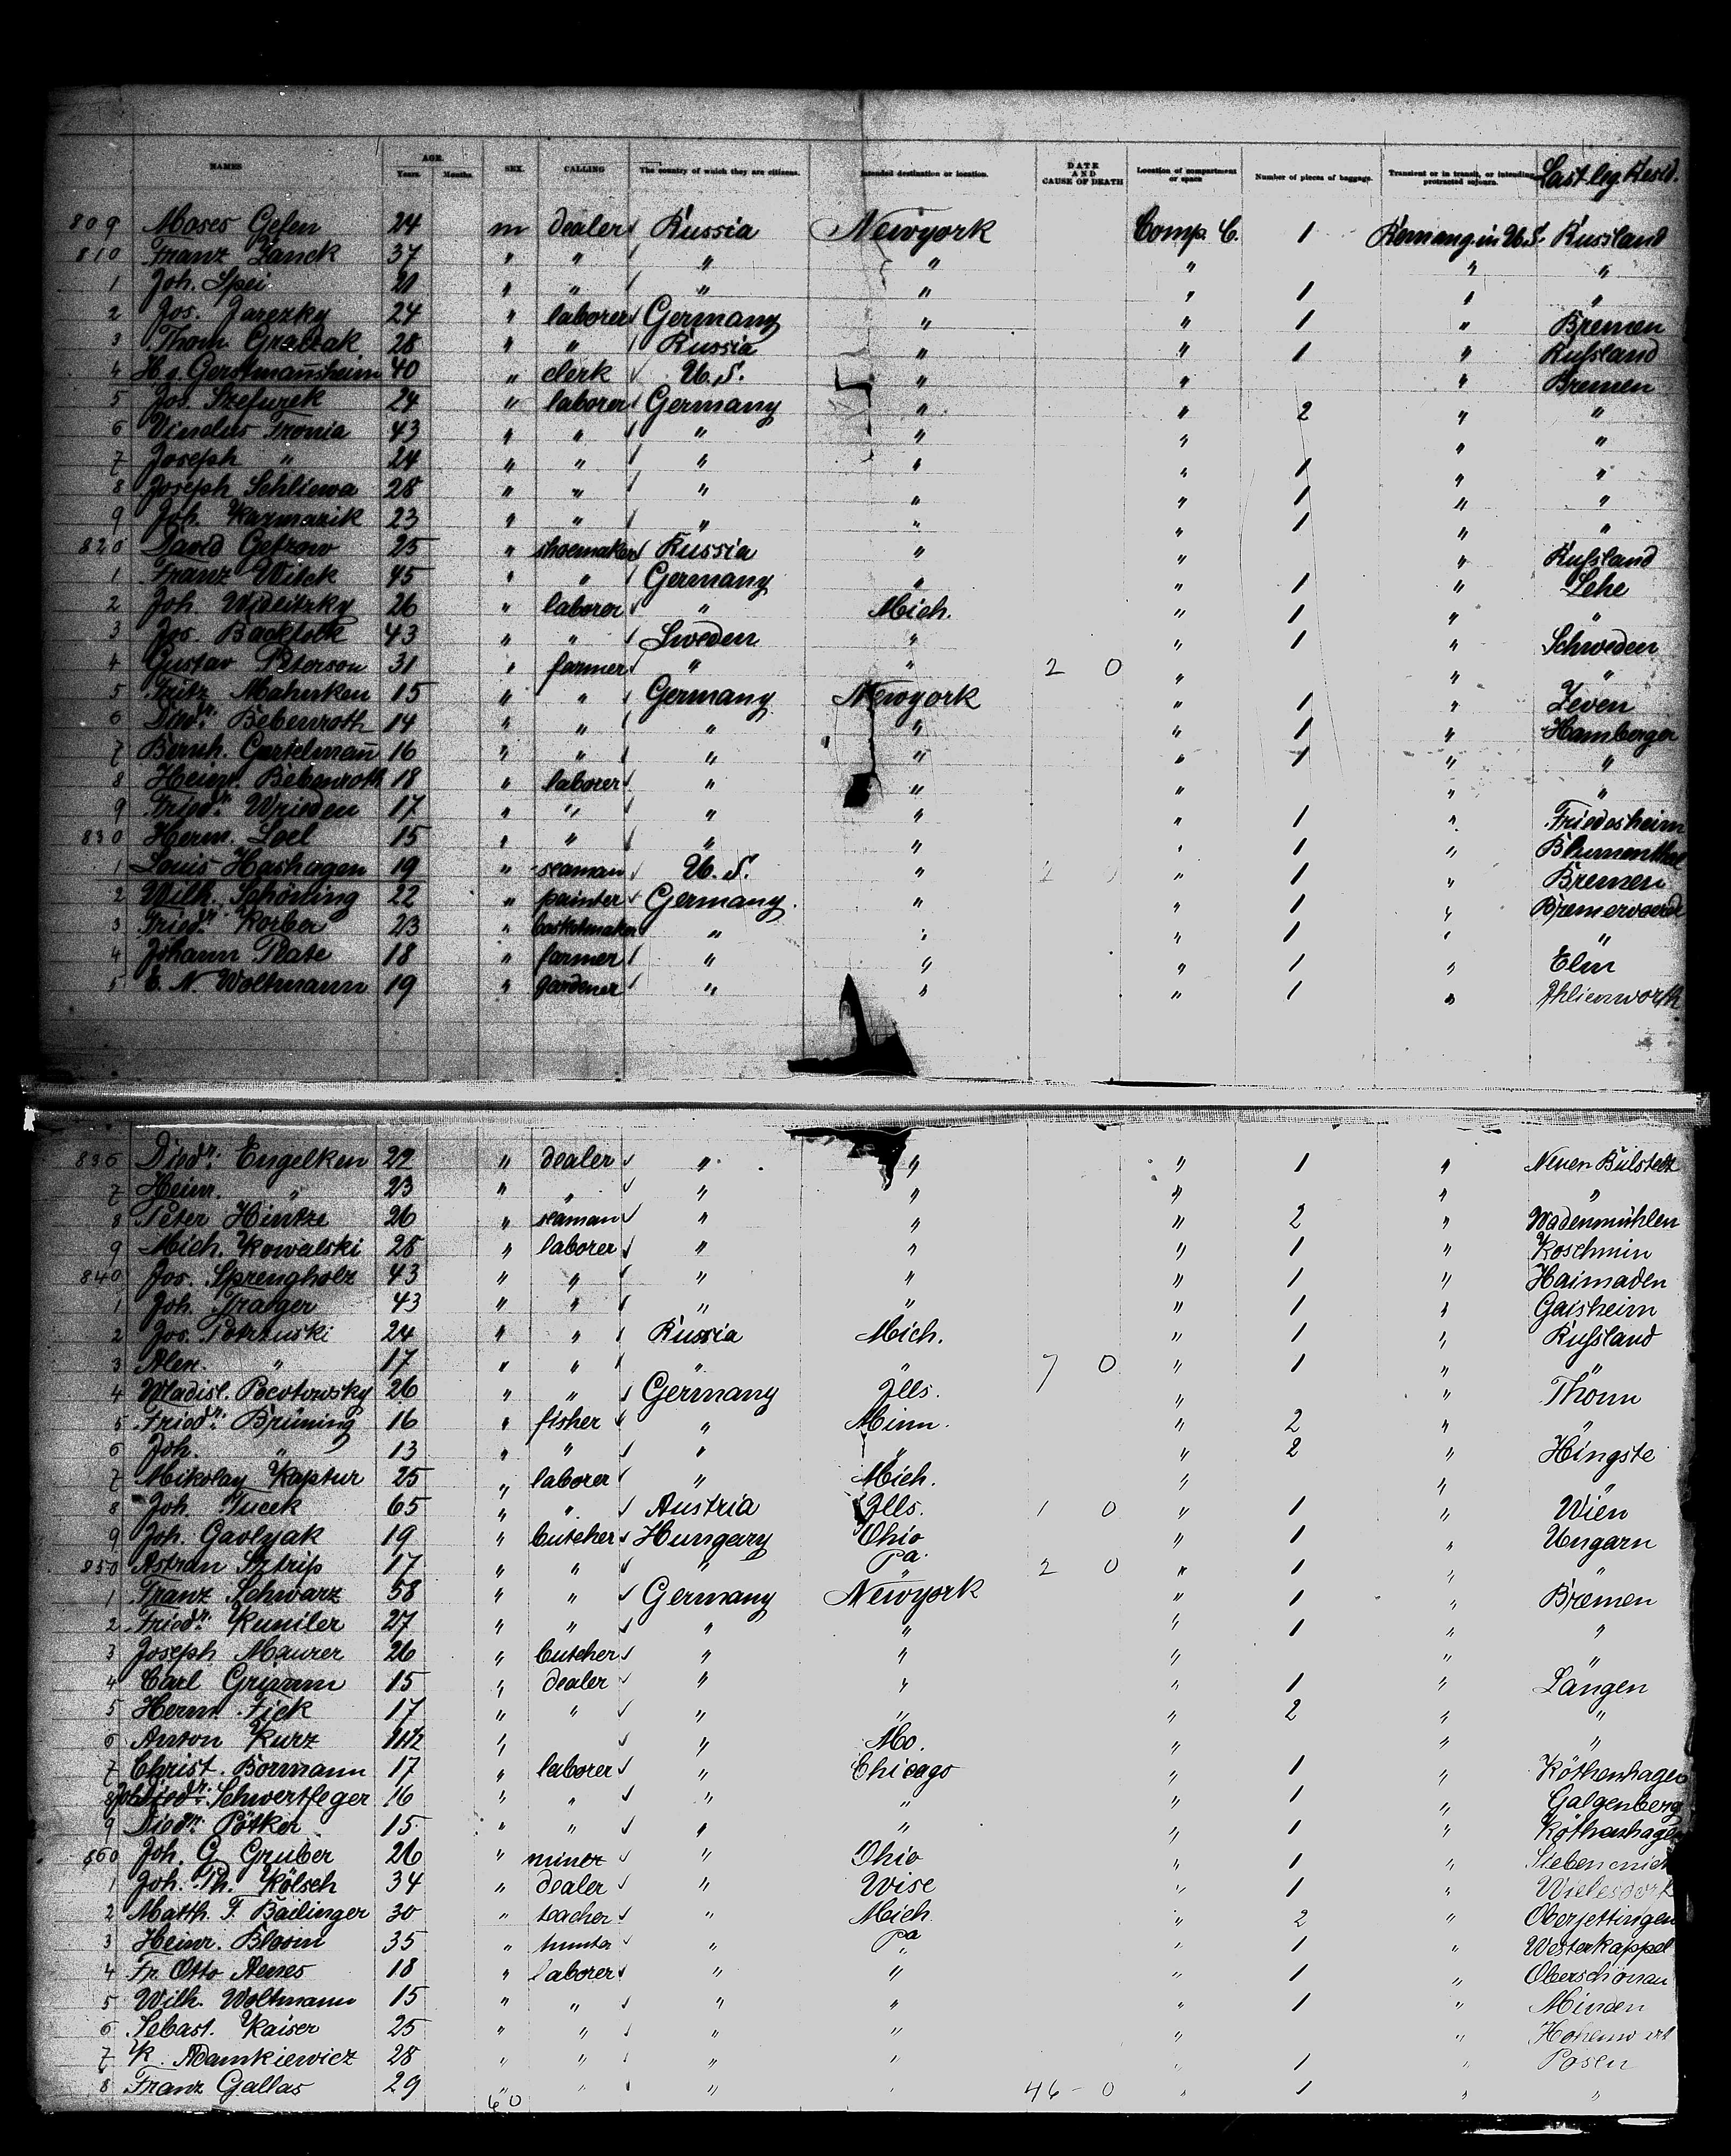 NAMES AGE. Years. Months. SEX. CALLING The country of which they are citizens. Intended destination or location. DATE AND CAUSE OF DEATH Location of compartment or space Number of pieces of baggage. Transient or in transit, or intending protracted sojourn. Last leg. Resid.
809 Moses Gefen 24 m dealer ✓ Russia Newyork Comp. C. 1 Remang. in U.S. Russland
810 Franz Janck 37 " " ✓ " " " " "
1 Joh. Spei 21 " " ✓ " " " 1 " "
2 Jos. Jarezky 24 " laborer ✓ Germany " " 1 " Bremen
3 Thom. Grabzak 28 " " ✓ Russia " " 1 " Rußland
4 H. Gerstmannsheim 40 " clerk ✓ U.S. " " " Bremen
5 Jos. Szefurek 24 " laborer ✓ Germany " " 2 " "
6 Tronia 43 " " ✓ " " " " "
7 Joseph " 24 " " ✓ " " " 1 " "
8 Joseph Schliewa 28 " " ✓ " " " 1 " "
9 Joh. Kazmarik 23 " " ✓ " " " 1 " "
820 David Getzow 25 " shoemaker ✓ Russia " " " Rußland
1 Franz Wilck 45 " " ✓ Germany " " 1 " Lehe
2 Joh. Widlitzky 26 " laborer ✓ " Mich. " 1 " "
3 Jos. Backfolk 43 " " ✓ Sweden " " 1 " Schweden
4 Gustav Peterson 31 " farmer ✓ " " 2 0 " " "
5 Fritz Mahnken 15 " " ✓ Germany Newyork " 1 " Zeven
6 Diedr. Bebenroth 14 " " " " " 1 " Hamberger
7 Bernh. Gartelmann 16 " " ✓ " " " 1 " "
8 Heinr. Bebenroth 18 " laborer ✓ " " " " "
9 Friedr. Wrieden 17 " " ✓ " " " 1 " Friedesheim
830 Herm. Loel 15 " " ✓ " " " 1 " Blumenthal
1 Louis Hashagen 19 " seaman ✓ U.S. " " 1 " Bremen
2 Wilh. Schöning 22 " painter ✓ Germany. " " 1 " Bremervoerde
3 Friedr. Korber 23 " basketmaker " " " 1 " "
4 Johann Plate 18 " farmer ✓ " " " 1 " Elm
5 E. N. Woltmann 19 " gardener ✓ " " " 1 " Ihlienworth
836 Diedr. Engelken 22 " dealer ✓ " " " 1 " Neuen Bülstedt
7 Heinr. " 23 " " ✓ " " " " "
8 Peter Hintze 26 " seaman ✓ " " " 2 " Wadenmühlen
9 Mich. Kowalski 28 " laborer ✓ " " " 1 " Koschmin
840 Jos. Sprengholz 43 " " ✓ " " " 1 " Haimaden
1 Joh. Trager 43 " " ✓ " " " 1 " Gaisheim
2 Jos. Potrzuski 24 " " ✓ Russia Mich. " 1 " Rußland
3 Alex. " 17 " " ✓ " " 7 0 " 1 " "
4 Wladisl. Pocotowsky 26 " " ✓ Germany Ills. " " Thorn
5 Friedr. Brüning 16 " fisher ✓ " Minn. " 2 " "
6 Joh. " 13 " " ✓ " " " 2 " Hingste
7 Mikolay Kaptur 25 " laborer ✓ " Mich. " " "
8 Joh. Tucek 65 " " ✓ Austria Ills. 1 0 " 1 " Wien
9 Joh. Gavlyak 19 " butcher ✓ Hungary Ohio " 1 " Ungarn
850 Astran Sztrip 17 " " ✓ " Pa. 2 0 " 1 " "
1 Franz Schwarz 58 " " ✓ Germany Newyork " 1 " Bremen
2 Friedr. Kumler 27 " " ✓ " " " 1 " "
3 Joseph Maurer 26 " butcher ✓ " " " " "
4 Carl Grimm 15 " dealer ✓ " " " 1 " Langen
5 Herm. Fick 17 " " ✓ " " " 2 " "
6 Anton Kurz 11½ " ✓ " Mo. " " "
7 Christ. Bormann 17 " laborer ✓ " Chicago " 1 " Köthenhagen
8 Joh. Diedr. Schwertfeger 16 " " ✓ " " " 1 " Galgenberg
9 Diedr. Pötker 15 " " ✓ " " " 1 " Köthenhagen
860 Joh. G. Gruber 26 " miner ✓ " Ohio " 1 "
1 Joh. Ph. Kölsch 34 " dealer ✓ " Wisc " 1 " Wielesdork
2 Matth. F. Bailinger 30 " teacher ✓ " Mich. " 2 " Oberjettingen
3 Heinr. Blosin 35 " hunter ✓ " Pa " 1 " Westerkappel
4 Fr. Otto Aenes 18 " laborer ✓ " " " 1 " Oberschönau
5 Wilh. Woltmann 15 " " ✓ " " " 1 " Minden
6 Sebast. Kaiser 25 " " ✓ " " " "
7 K. Adamkiewicz 28 " " ✓ " " " 1 " Posen
8 Franz Gallas 29 " " ✓ " " 46 - 0 " 1 " "
60